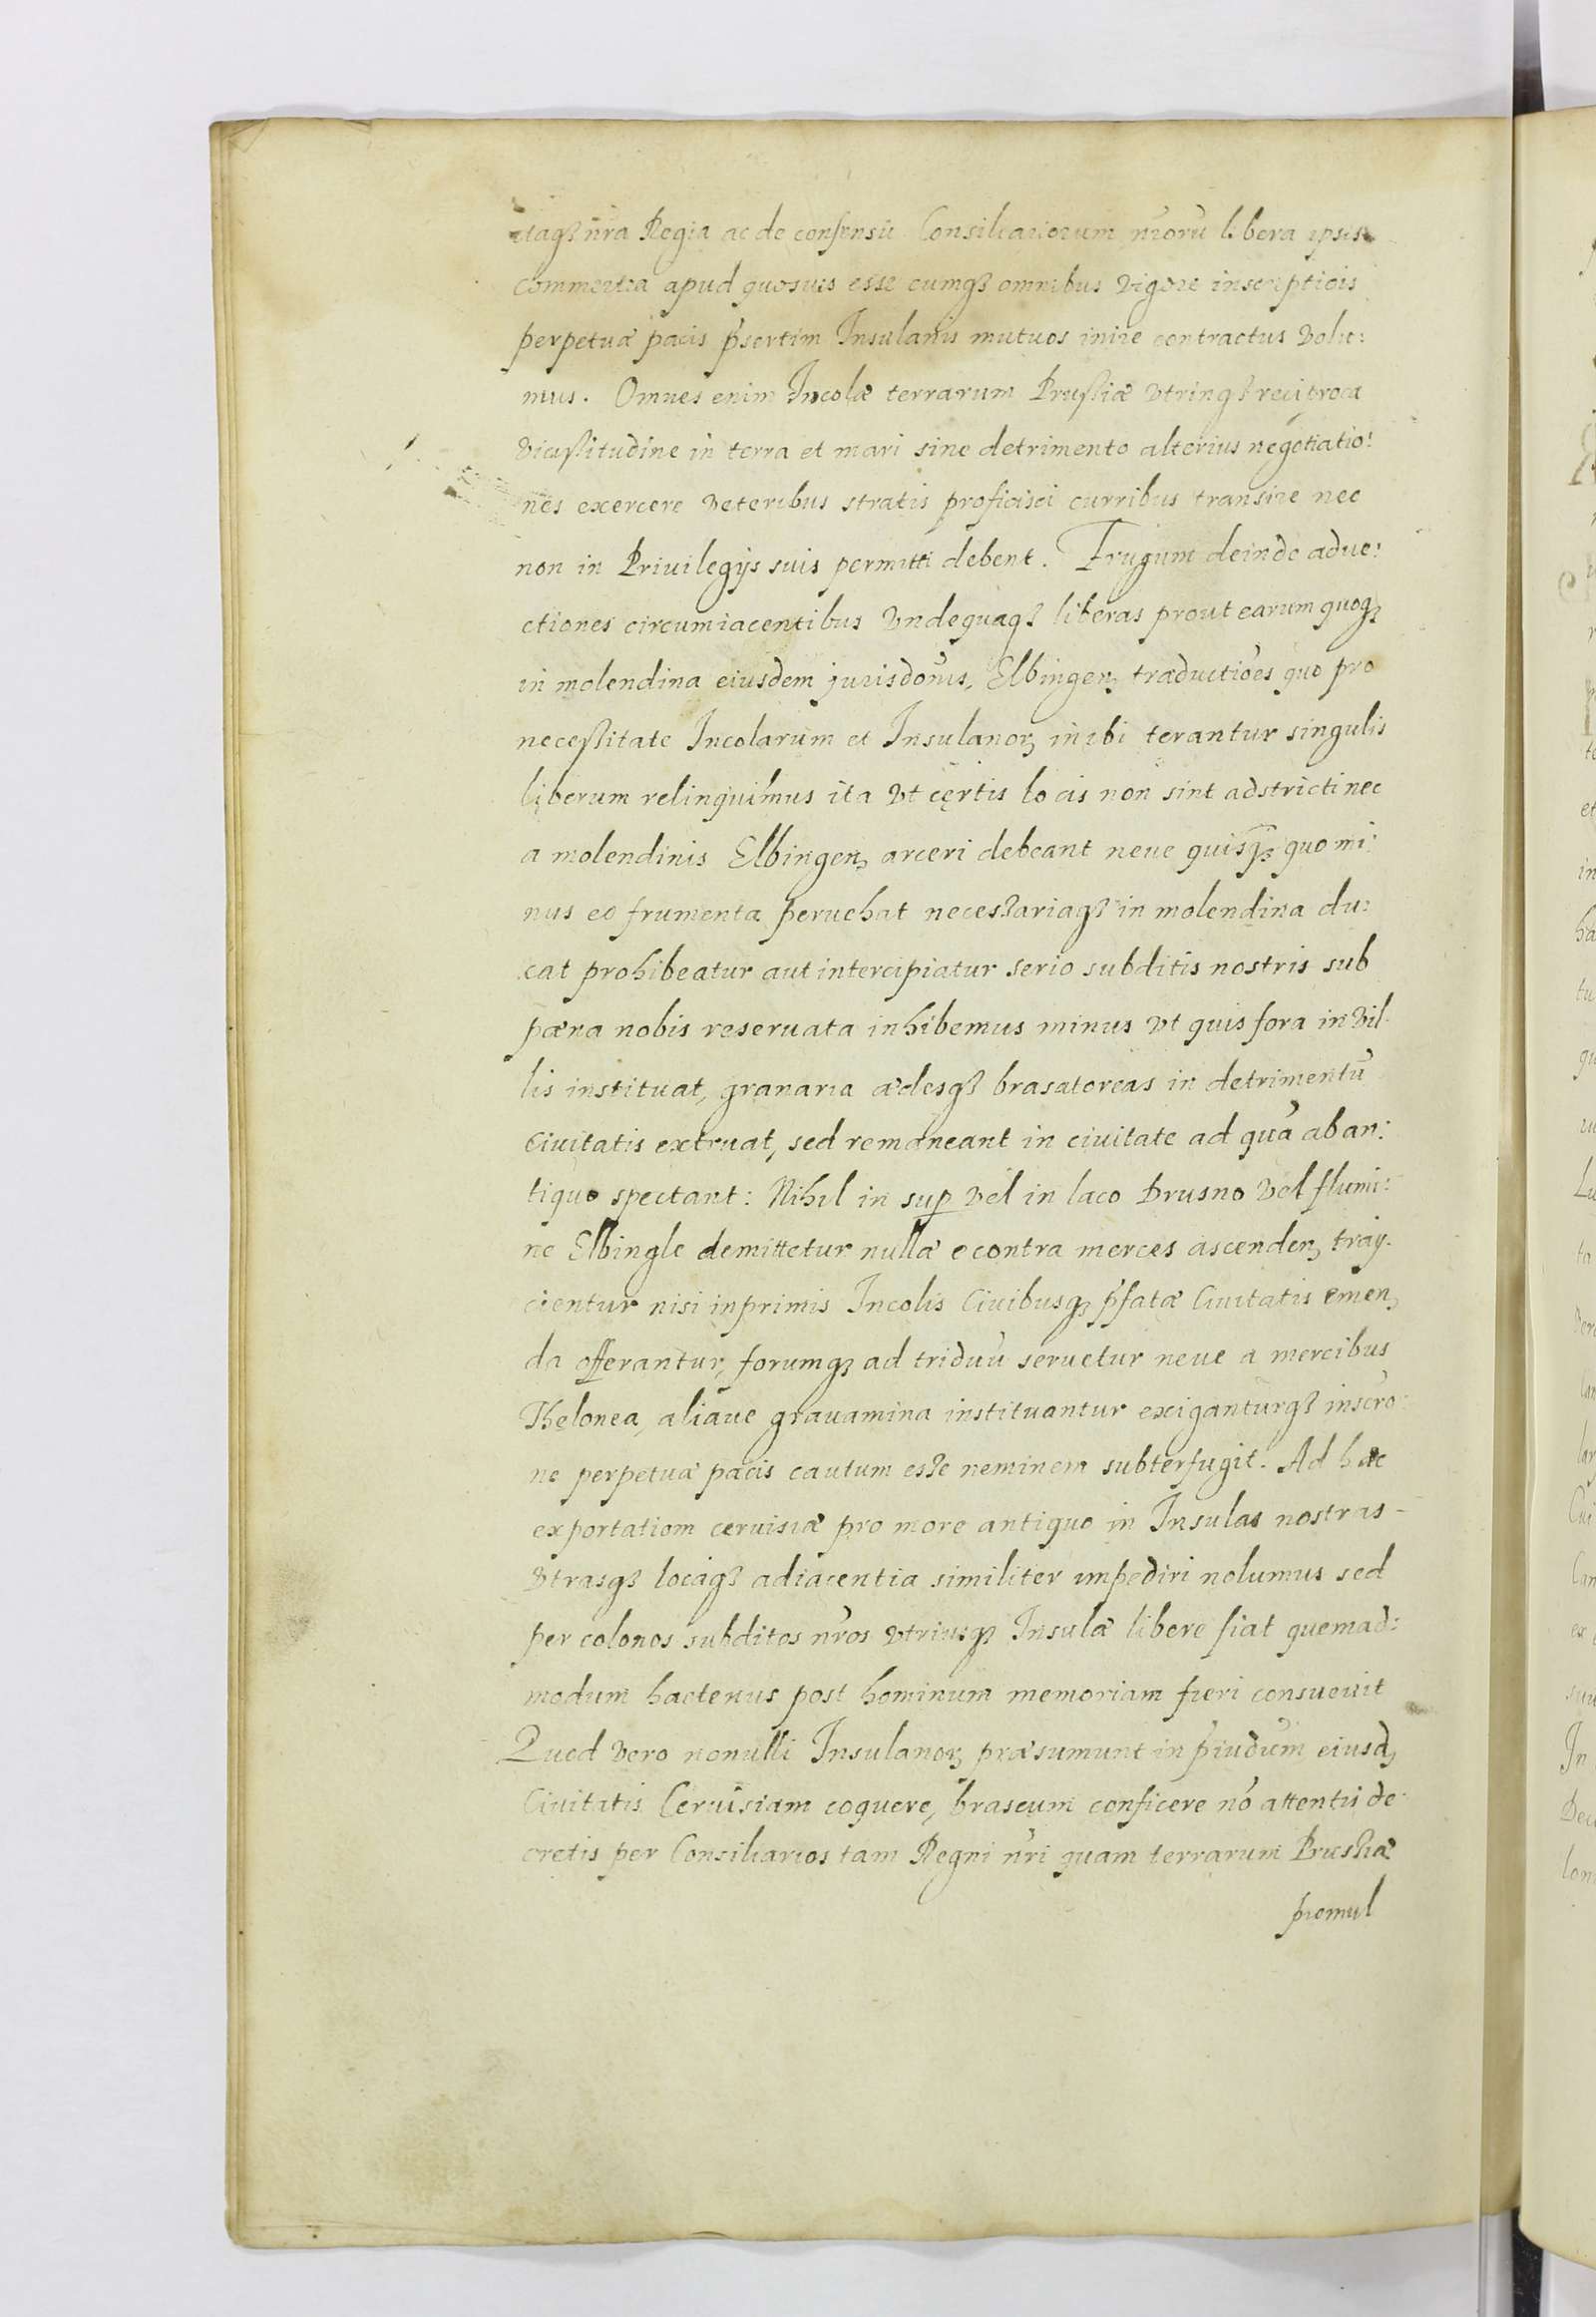 itaqȝ nr̃a Regia ac de consensu Consiliariorum nr̃orũ libera ipsis
commertia apud quosuis esse cumqȝ omnibus vigore inscriptiõis
perpetuæ pacis p̃sertim Insulanis mutuos inire contractus volu:
mus. Omnes enim Incolæ terrarum Prussiæ vtrinqȝ reciproca
vicissitudine in terra et mari sine detrimento alterius negotiatio:
nes exercere veteribus stratis proficisci curribus transire nec
non in Priuilegijs suis permitti debent. Frugum deinde adue:
ctiones circumiacentibus vndequaqȝ liberas prout earum quoqȝ
in molendina eiusdem jurisdõnis, Elbingenȝ traductiões quo pro
necessitate Incolarum et Insulanorȝ inibi terantur singulis
liberum relinquimus ita vt certis locis non sint adstricti nec
a molendinis Elbingenȝ arceri debeant neue quisqȝ quo mi:
nus eo frumenta peruehat necessariaqȝ in molendina du:
cat prohibeatur aut intercipiatur serio subditis nostris sub
pæna nobis reseruata inhibemus minus vt quis fora in vil-
lis instituat, granaria ædesqȝ brasatoreas in detrimentũ
Ciuitatis extruat, sed remaneant in ciuitate ad quã ab an:
tiquo spectant: Nihil in sup vel in laco Drusno vel flumi:
ne Elbingle demittetur nullæ econtra merces ascendenȝ traij-
cientur nisi inprimis Incolis Ciuibusqȝ p̃fatæ Ciuitatis emenȝ
da offerantur, forumqȝ ad triduũ seruetur neue a mercibus
Thelonea, aliaue grauamina instituantur exiganturqȝ inscrõ:
ne perpetuæ pacis cautum esse neminem subterfugit. Ad hæc
exportatiom ceruisiæ pro more antiquo in Insulas nostras-
vtrasqȝ locaqȝ adiacentia similiter impediri nolumus sed
per colonos subditos nr̃os vtriusqȝ Insulæ libere fiat quemad:
modum hactenus post hominum memoriam fieri consueuit
Quod vero nonulli Insulanorȝ præsumunt in p̃iudiũm eiusdȝ
Ciuitatis Ceruisiam coquere, braseum conficere nõ attentis de-
cretis per Consiliarios tam Regni nr̃i quam terrarum Prussiæ
promul